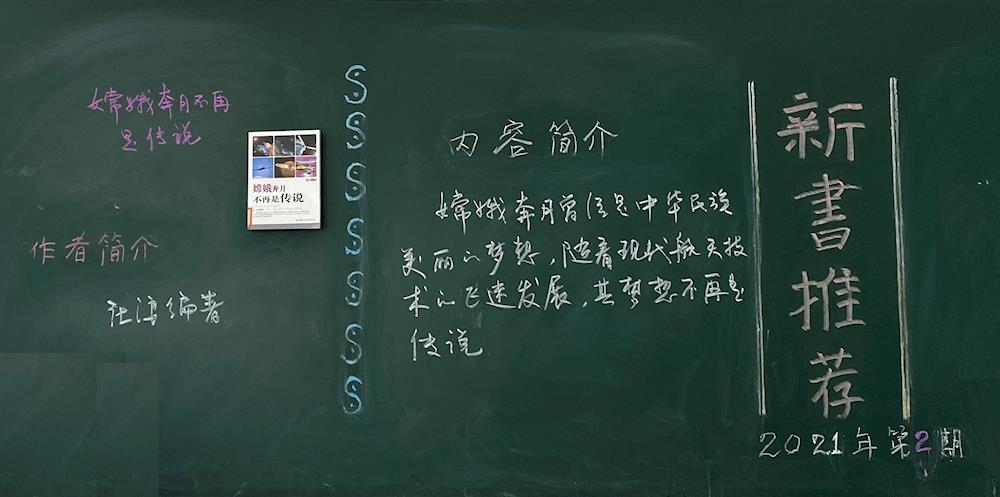 嫦娥奔月不再
是传说
嫦娥奔月
不再是传说
作者简介
编著
内容简介
嫦娥奔月曾经是中华民族
美丽的梦想,随着现代航天技
术的飞速发展,其梦想不再是
传说
新書推荐
2021年第2期